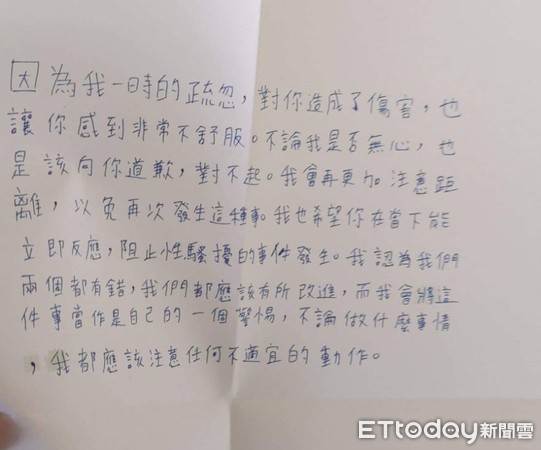 因為我一時的疏忽，對你造成了傷害，也
讓你感到非常不舒服。不論我是否無心，也
是該向你道歉，對不起。我會再更加注意距
離，以免再次發生這種事。我也希望你在當下能
立即反應，阻止性騷擾的事件發生。我認為我們
兩個都有錯，我們都應該有所改進，而我會將這
件事當作是自己的一個警惕，不論做什麼事情
，我都應該注意任何不適宜的動作。
ETtoday新聞雲